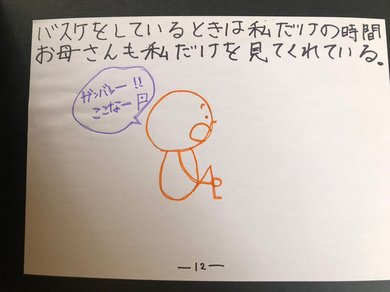 バスケをしているときは私だけの時間
お母さんも私だけを見てくれている。
ガンバレー!!
ここなー
—12—